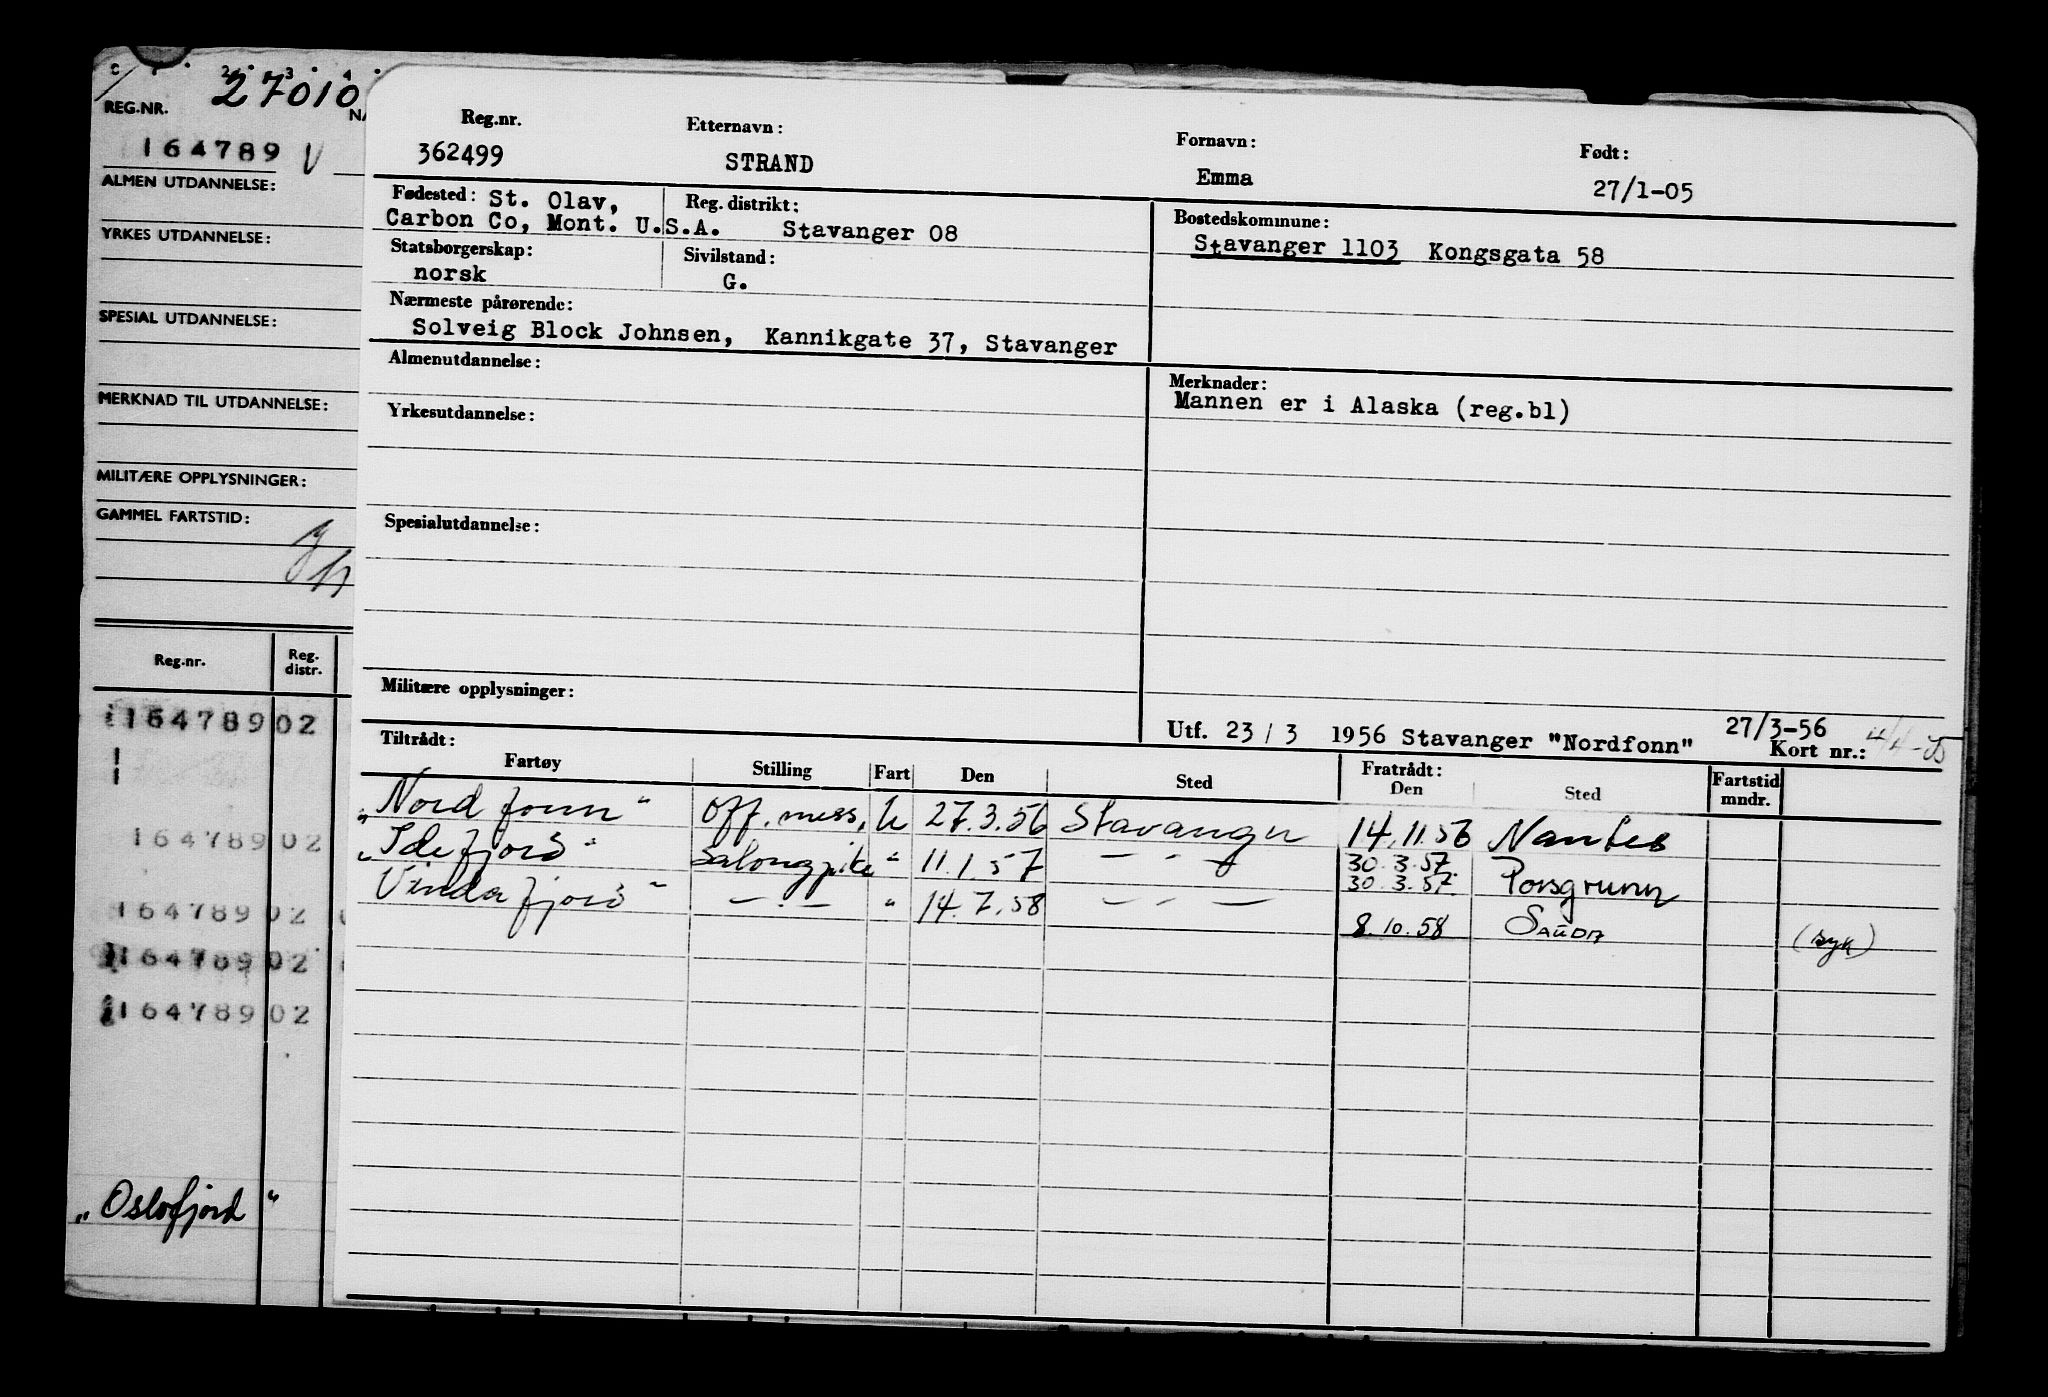 27010
REG.NR.
164789 V
ALMEN UTDANNELSE:
YRKES UTDANNELSE:
SPESIAL UTDANNELSE:
MERKNAD TIL UTDANNELSE:
MILITÆRE OPPLYSNINGER:
GAMMEL FARTSTID:
Reg.nr. Reg. distr.
164789 02
164789 02
164789 02
164789 02
164789 02
„Oslofjord"
Reg.nr. Etternavn: Fornavn: Født:
362499 STRAND Emma 27/1-05
Fødested: St. Olav, Reg. distrikt: Bostedskommune:
Carbon Co, Mont. U.S.A. Stavanger 08 Stavanger 1103 Kongsgata 58
Statsborgerskap: Sivilstand:
norsk G.
Nærmeste pårørende:
Solveig Block Johnsen, Kannikgate 37, Stavanger
Almenutdannelse: Merknader:
Mannen er i Alaska (reg.bl)
Yrkesutdannelse:
Spesialutdannelse:
Militære opplysninger:
Utf. 23/3 1956 Stavanger "Nordfonn" 27/3-56 Kort nr.:
Tiltrådt: Fratrådt:
Fartøy Stilling Fart Den Sted Den Sted Fartstid mndr.
„Nordfonn" Off.mess. U 27.3.56 Stavanger 14.11.56 Nantes
„Idefjord" Salongpike " 11.1.57 — " — 30.3.57
30.3.57 Porsgrunn
Vindafjord" — " — " 14.7.58 — " —
8.10.58 SAUDA (syk)